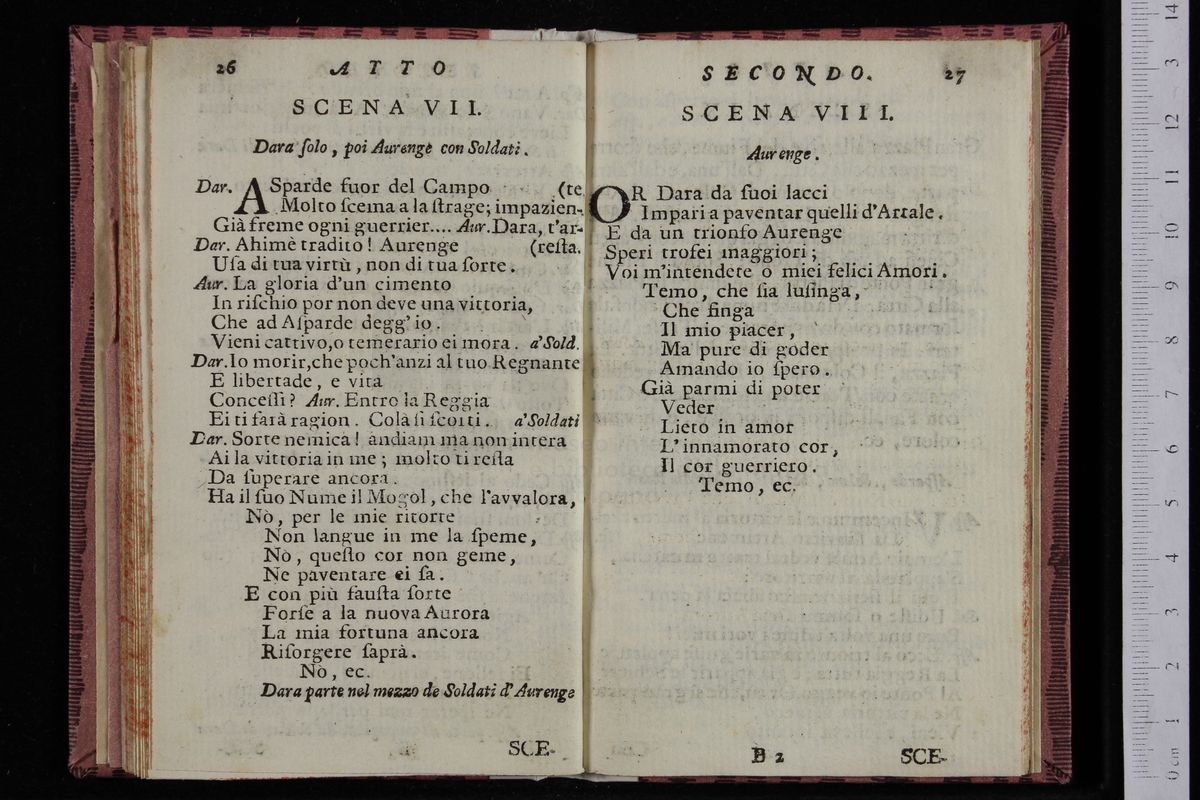 26 ATTO
SCENA VII.
Dara ſolo, poi Aurenge con Soldati.
Dar. ASparde fuor del Campo (te
Molto ſcema a la ſtrage; impazien-
Già freme ogni guerrier.... Aur. Dara, t'ar-
Dar. Ahimè tradito! Aurenge (reſta.
Uſa di tua virtù, non di tua ſorte.
Aur. La gloria d'un cimento
In riſchio por non deve una vittoria,
Che ad Aſparde degg' io.
Vieni cattivo, o temerario ei mora. a' Sold.
Dar. Io morir, che poch'anzi al tuo Regnante
E libertade, e vita
Conceſſi? Aur. Entro la Reggia
Ei ti farà ragion. Colà ſi ſcorti. a' Soldati
Dar. Sorte nemica! andiam ma non intera
Ai la vittoria in me; molto ti reſta
Da ſuperare ancora.
Ha il ſuo Nume il Mogol, che l'avvalora,
Nò, per le mie ritorte
Non langue in me la ſpeme,
Nò, queſto cor non geme,
Ne paventare ei ſa.
E con più fauſta ſorte
Forſe a la nuova Aurora
La mia fortuna ancora
Riſorgere ſaprà.
Nò, ec.
Dara parte nel mezzo de Soldati d'Aurenge
SCE-
SECONDO. 27
SCENA VIII.
Aurenge.
OR Dara da ſuoi lacci
Impari a paventar quelli d'Artale.
E da un trionfo Aurenge
Speri trofei maggiori;
Voi m'intendete o miei felici Amori.
Temo, che ſia luſinga,
Che finga
Il mio piacer,
Ma pure di goder
Amando io ſpero.
Già parmi di poter
Veder
Lieto in amor
L'innamorato cor,
Il cor guerriero.
Temo, ec.
B 2 SCE-
14
13
12
11
10
9
8
7
6
5
4
3
2
1
0 cm